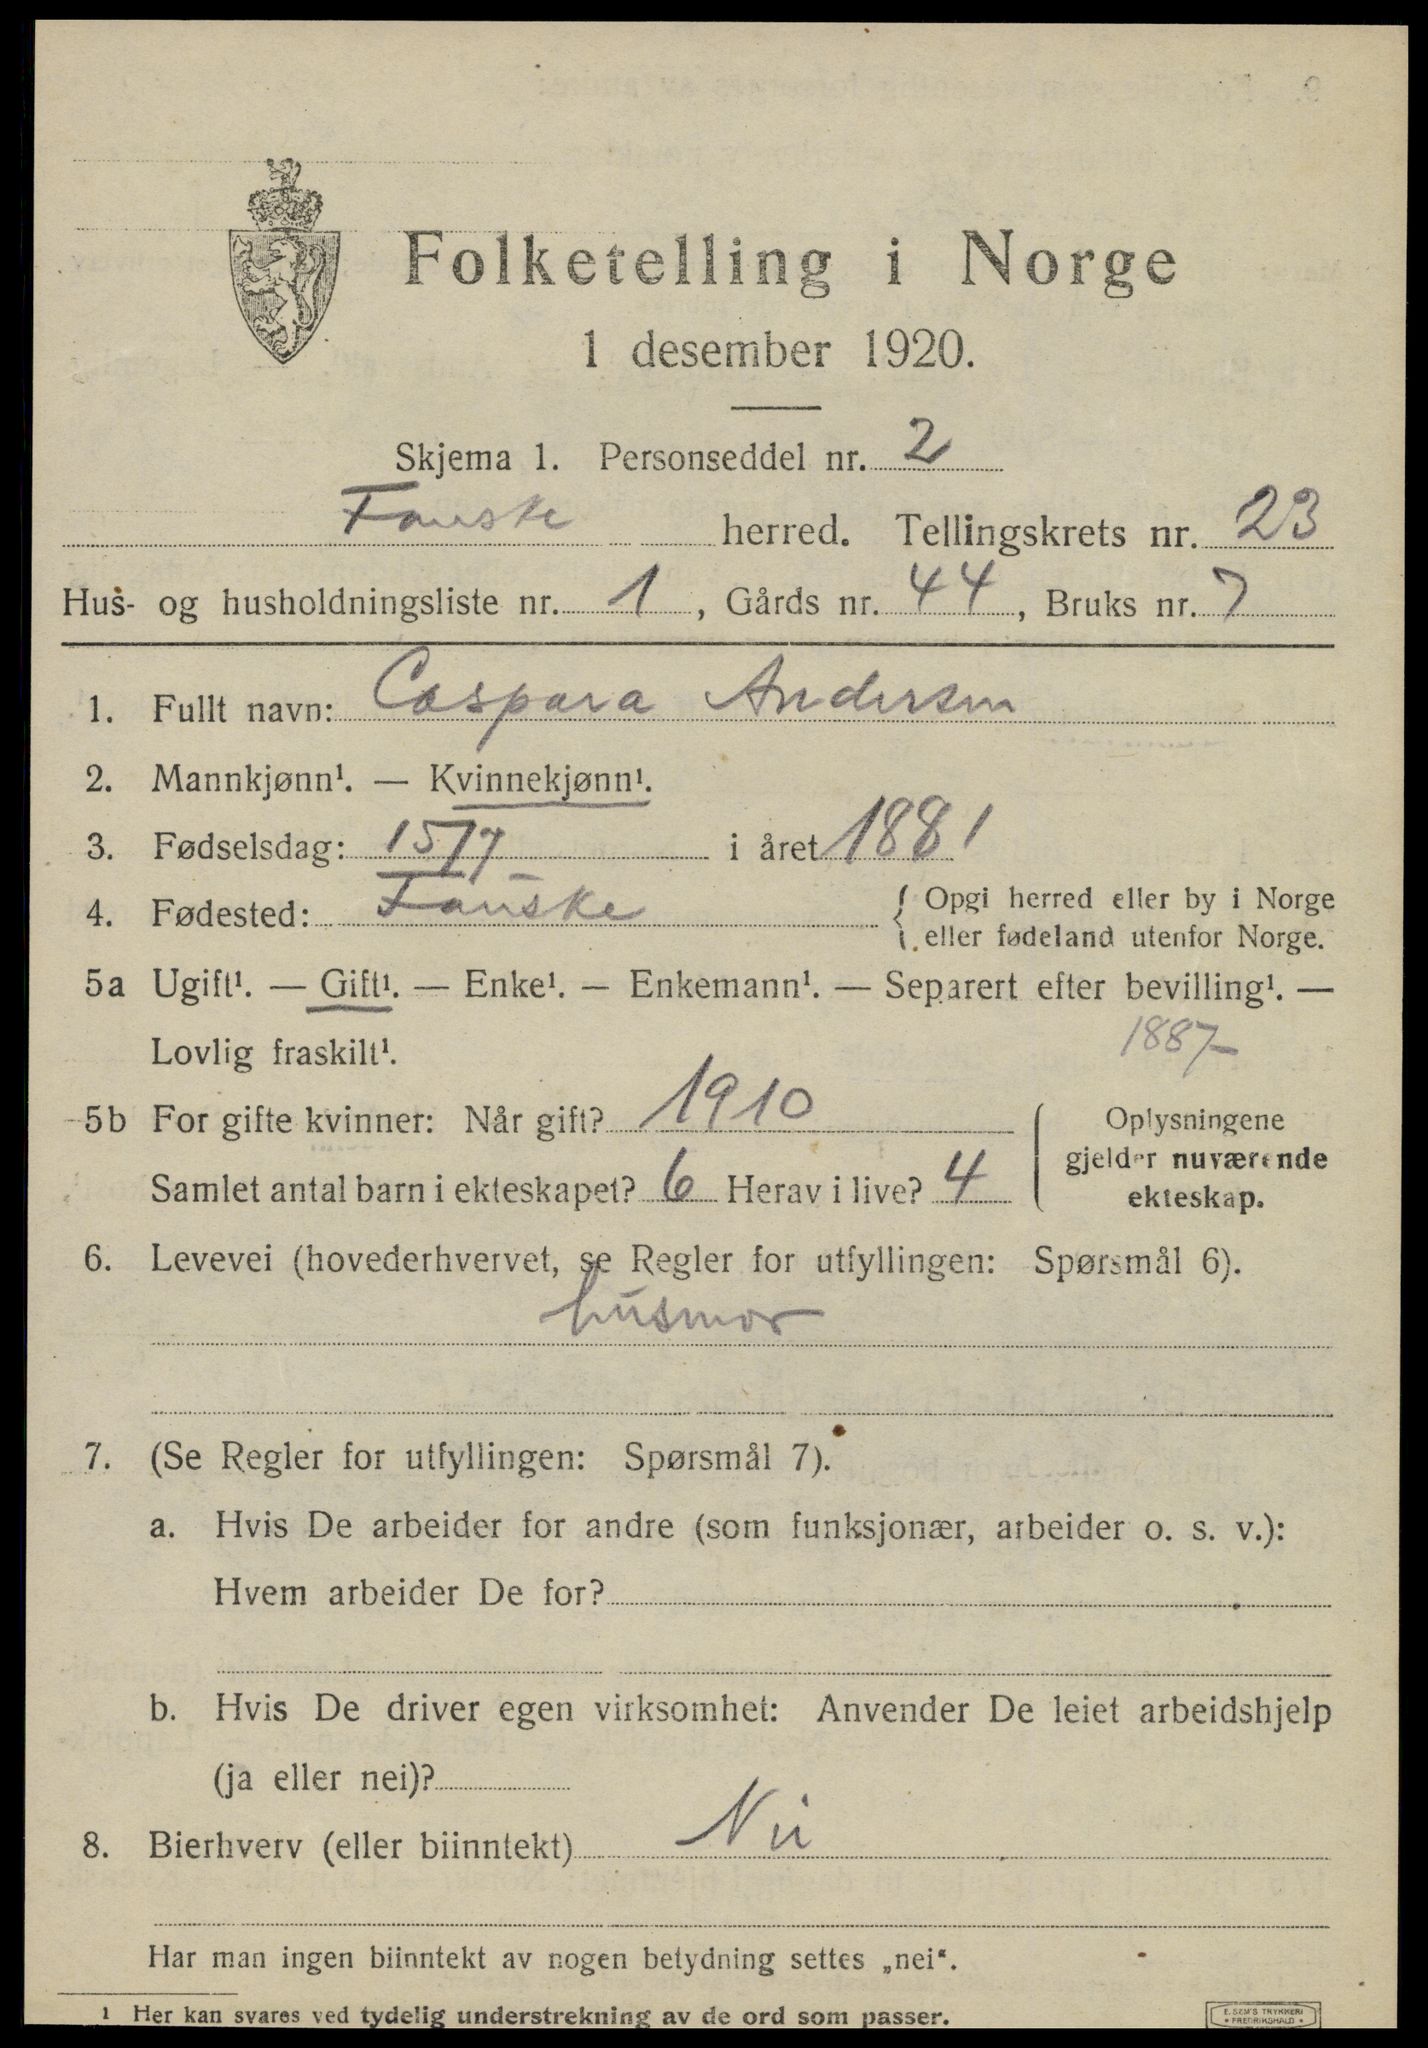 Folketelling i Norge
1 desember 1920.
Skjema 1. Personseddel nr. 2
Fauske herred. Tellingskrets nr. 23
Hus- og husholdningsliste nr. 1, Gårds nr. 44, Bruks nr. 7
1. Fullt navn: Caspara Andersen
2. Mannkjønn¹. — Kvinnekjønn¹.
3. Fødselsdag: 15/7 i året 1881
4. Fødested: Fauske { Opgi herred eller by i Norge
eller fødeland utenfor Norge.
5a Ugift¹. — Gift¹. — Enke¹. — Enkemann¹. — Separert efter bevilling¹. —
Lovlig fraskilt¹. 1887
5b For gifte kvinner: Når gift? 1910
Samlet antal barn i ekteskapet? 6 Herav i live? 4
Oplysningene
gjelder nuværende
ekteskap.
6. Levevei (hovederhvervet, se Regler for utfyllingen: Spørsmål 6).
husmor
7. (Se Regler for utfyllingen: Spørsmål 7).
a. Hvis De arbeider for andre (som funksjonær, arbeider o. s. v.):
Hvem arbeider De for?
b. Hvis De driver egen virksomhet: Anvender De leiet arbeidshjelp
(ja eller nei)?
8. Bierhverv (eller biinntekt) Nei
Har man ingen biinntekt av nogen betydning settes „nei“.
1 Her kan svares ved tydelig understrekning av de ord som passer.
E. SEM'S TRYKKERI
• FREDRIKSHALD •